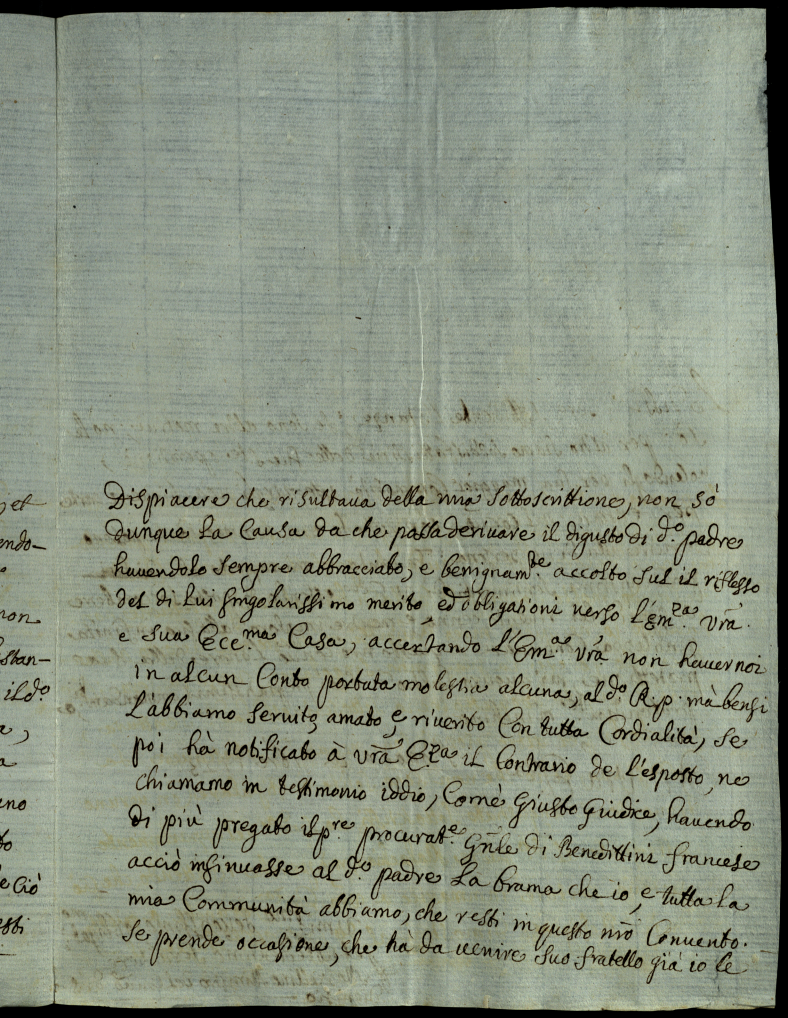 et
endo-
non
stan-
il d.º
a,
a
ano
to
e Ciò
esti
Dispiacere che risultaua della mia sottoscrittione, non sò
dunque la Causa da che possa deriuare il digusto di d.º padre
hauendolo sempre abbracciato, e benignam.te accolto sul il riflesso
del di lui singolarissimo merito, ed obligationi uerso l'Em.za vrã.
e sua Ecc.ma Casa, accertando l'Em.za vrã non hauer noi
in alcun Conto portata molestia alcuna, al d.º R.p. mà bensi
l'abbiamo seruito, amato, e riuerito Con tutta Cordialità, se
poi hà notificato à vrã E.za il Contrario de l'esposto, ne
chiamamo in testimonio iddio, Com'è Giusto Giudice, hauendo
di più pregato il p.re procurat.e Gñle di Benedittini francese
acciò insinuasse al d.º padre la brama che io, e tutta la
mia Communità abbiamo, che resti in questo nrõ Conuento.
se prende occasione, che hà da uenire suo fratello già io le